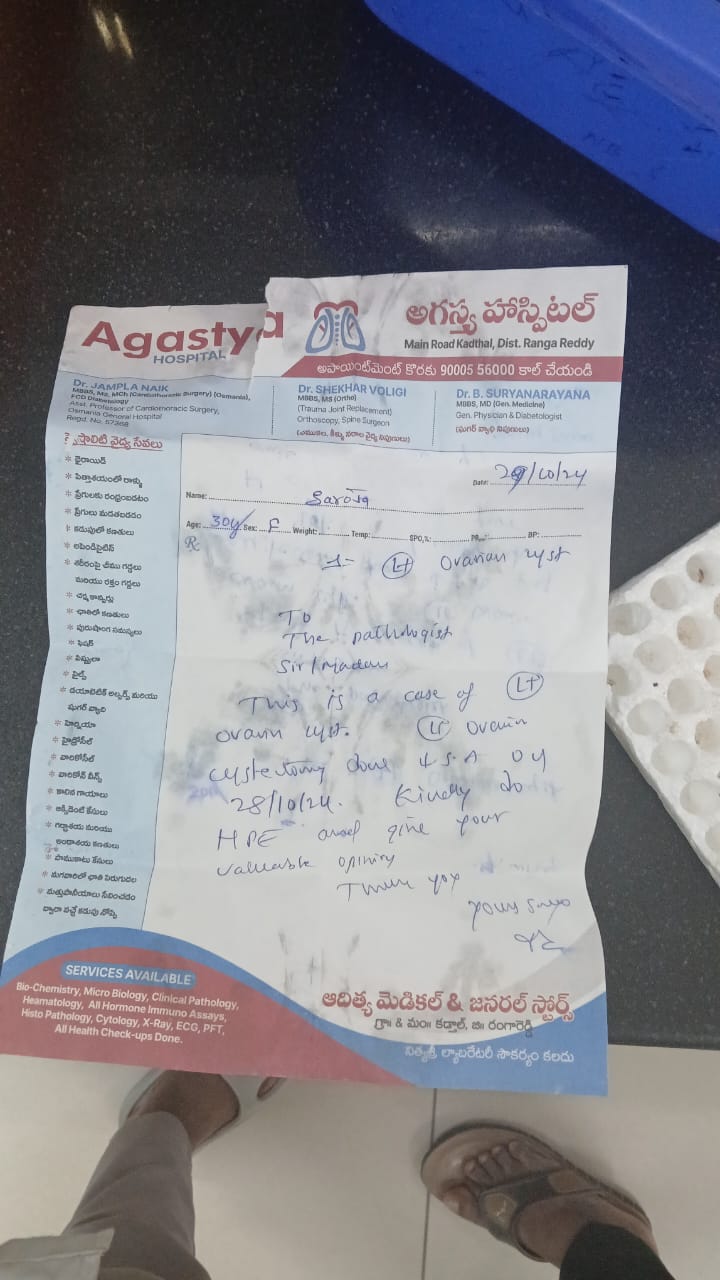 Agastya
HOSPITAL
అగస్త్య హాస్పిటల్
Main Road Kadthal, Dist. Ranga Reddy
అపాయింట్‌మెంట్ కొరకు 90005 56000 కాల్ చేయండి
Dr. JAMPLA NAIK
MBBS, Ms, MCh (Cardiothoracic Surgery) (Osmania),
FCD Diabetology
Asst. Professor of Cardiomoracic Surgery,
Osmania General Hospital
Regd. No. 57368
Dr. SHEKHAR VOLIGI
MBBS, MS (Ortho)
(Trauma Joint Replacement)
Orthoscopy, Spine Surgeon
(ఎముకలు, కీళ్ళు నరాల వైద్య నిపుణులు)
Dr. B. SURYANARAYANA
MBBS, MD (Gen. Medicine)
Gen. Physician & Diabetologist
(షుగర్ వ్యాధి నిపుణులు)
స్పెషాలిటి వైద్య సేవలు
* థైరాయిడ్
* పిత్తాశయంలో రాళ్ళు
* ప్రేగులకు రంధ్రంబడటం
* ప్రేగులు మడతబడడం
* కడుపులో కణతులు
* అపెండిసైటిస్
* శరీరంపై చీము గడ్డలు
మరియు రక్తం గడ్డలు
* చర్మ కాన్సర్లు
* ఛాతిలో కణతులు
* పురుషాంగ సమస్యలు
* ఫిషర్
* ఫిస్టులా
* పైల్స్
* డయాబెటిక్ అల్సర్స్ మరియు
షుగర్ వ్యాది
* హెర్నియా
* హైడ్రోసిల్
* వారికోసిల్
* వారికోస్ వీన్స్
* కాలిన గాయాలు
* ఆక్సిడెంట్ కేసులు
* గర్భాశయ మరియు
అండాశయ కణతులు
* పాముకాటు కేసులు
* మగవారిలో ఛాతి పెరుగుదల
* మత్తుపానీయాలు సేవించడం
ద్వారా వచ్చే కడుపు నొప్పి
Date: 29/10/24
Name: Saroja
Age: 30y Sex: F Weight: Temp: SPO₂%: PR: BP:
Rx
1- Lt Ovarian cyst
To
The pathologist
Sir/Madam
This is a case of Lt
ovarian cyst. Lt Ovarian
cystectomy done U.S.A on
28/10/24. Kindly do
HPE and give your
valuable opinion
Thank you
yours
SERVICES AVAILABLE
Bio-Chemistry, Micro Biology, Clinical Pathology,
Heamatology, All Hormone Immuno Assays,
Histo Pathology, Cytology, X-Ray, ECG, PFT,
All Health Check-ups Done.
ఆదిత్య మెడికల్ & జనరల్ స్టోర్స్
గ్రా॥ & మం॥ కడ్తాల్, జి॥ రంగారెడ్డి
నిత్యశ్రీ ల్యాబరేటరీ సౌకర్యం కలదు